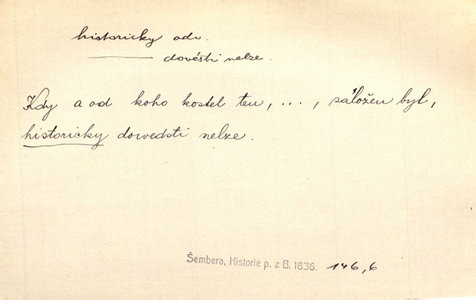 historicky adv.
dovésti nelze.
Kdy a od koho kostel ten, ..., založen byl,
historicky dowedsti nelze.
Šembera, Historie p. z B. 1836. 146,6